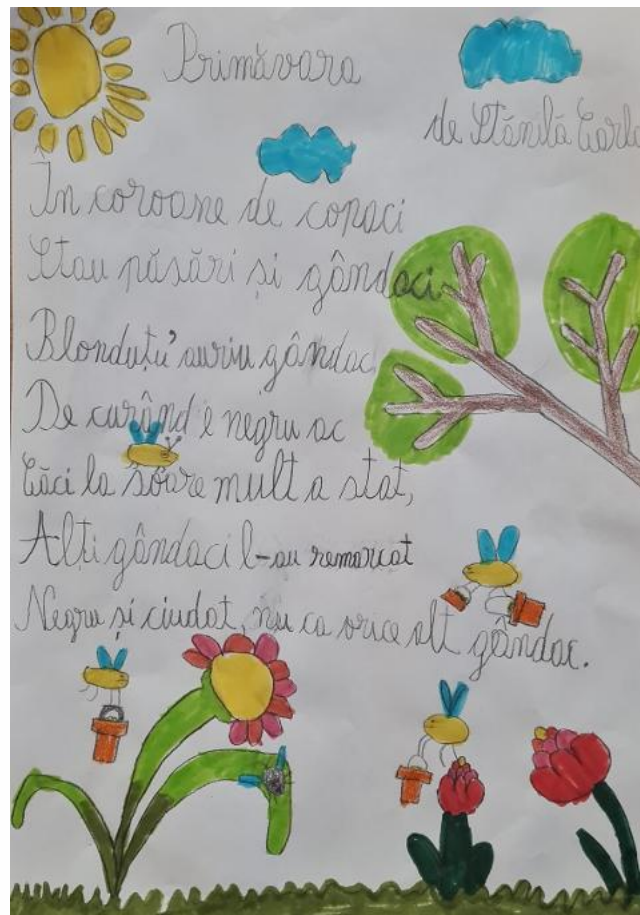 Primăvara
de Stănilă Carla
În coroane de copaci
Stau păsări și gândaci
Blonduțu' auriu gândac,
De curând e negru ac
Căci la soare mult a stat,
Alți gândaci l-au remarcat
Negru și ciudat, nu ca orice alt gândac.